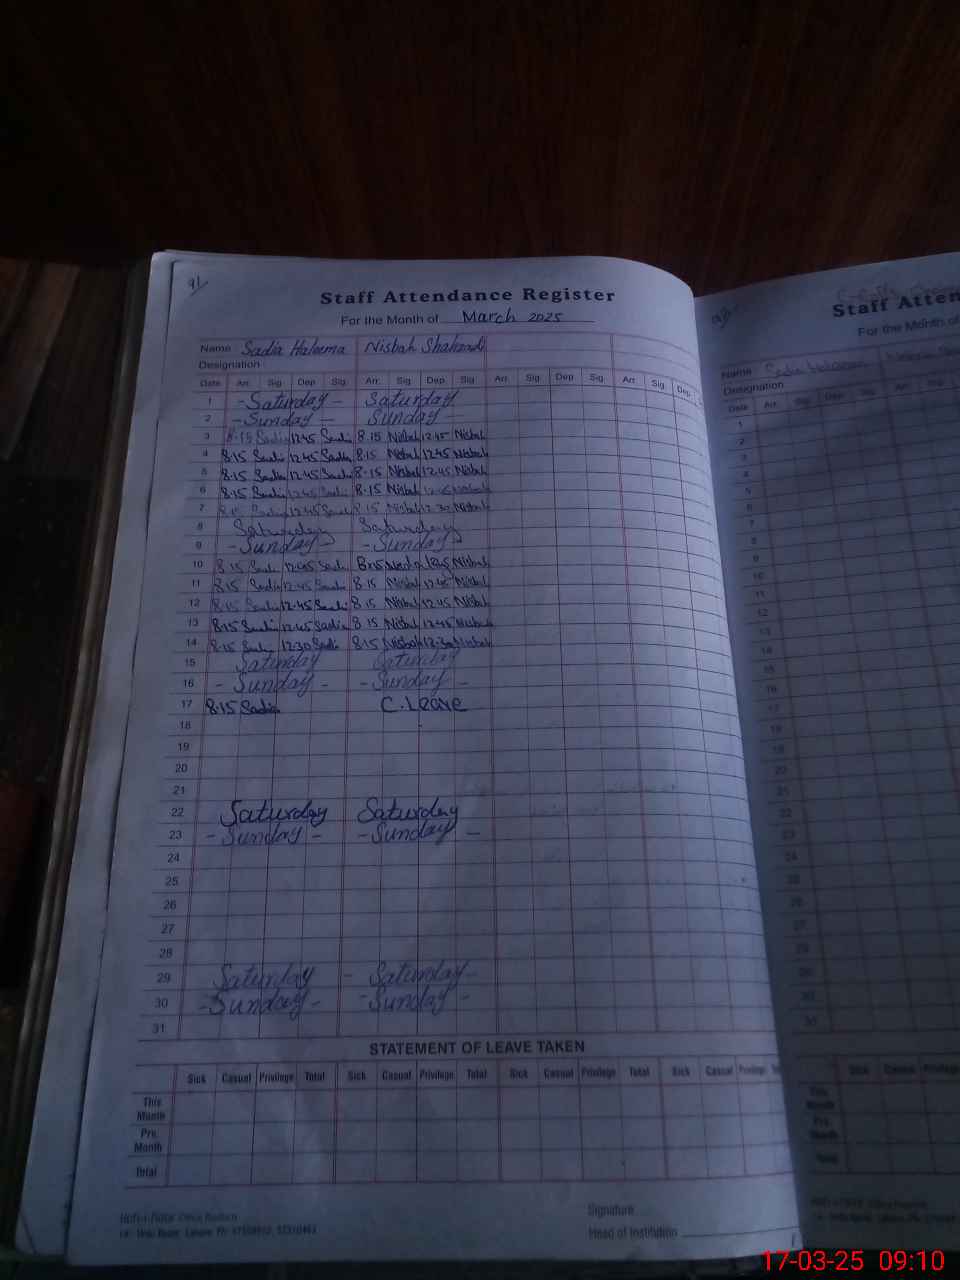 91
Staff Attendance Register
For the Month of March 2025
Name Sadia Haleema Nisbah Shahzadi
Designation
Date Arr. Sig. Dep. Sig. Arr. Sig. Dep. Sig. Arr. Sig. Dep. Sig. Arr. Sig. Dep.
1 - Saturday - Saturday
2 - Sunday - Sunday -
3 8.15 Sadia 12.45 Sadia 8.15 Nisbah 12.45 Nisbah
4 8.15 Sadia 12.45 Sadia 8.15 Nisbah 12.45 Nisbah
5 8.15 Sadia 12.45 Sadia 8.15 Nisbah 12.45 Nisbah
6 8.15 Sadia 12.45 Sadia 8.15 Nisbah 12.45 Nisbah
7 8.15 Sadia 12.45 Sadia 8.15 Nisbah 12.30 Nisbah
8 Saturday Saturday
9 - Sunday - - Sunday
10 8.15 Sadia 12.45 Sadia 8.15 Nisbah
11 8.15 Sadia 12.45 Sadia 8.15 Nisbah 12.45 Nisbah
12 8.15 Sadia 12.45 Sadia 8.15 Nisbah 12.45 Nisbah
13 8.15 Sadia 12.45 Sadia 8.15 Nisbah 12.45 Nisbah
14 8.15 Sadia 12.30 Sadia 8.15 Nisbah 12.30 Nisbah
15 Saturday Saturday
16 - Sunday - - Sunday -
17 8.15 Sadia C. Leave
18
19
20
21
22 Saturday Saturday
23 - Sunday - - Sunday -
24
25
26
27
28
29 Saturday - Saturday -
30 - Sunday - - Sunday -
31
STATEMENT OF LEAVE TAKEN
Sick Casual Privilege Total Sick Casual Privilege Total Sick Casual Privilege Total Sick Casual Privilege
This Month
Pre. Month
Total
Signature
Head of Institution
Staff Atten
For the Month of
Name Sadia Haleema
Designation
Date Arr. Sig. Dep. Sig. Arr. Sig.
1
2
3
4
5
6
7
8
9
10
11
12
13
14
15
16
17
18
19
20
21
22
23
24
25
26
27
28
29
30
31
Sick Casual Privilege
This Month
Pre. Month
Total
17-03-25 09:10